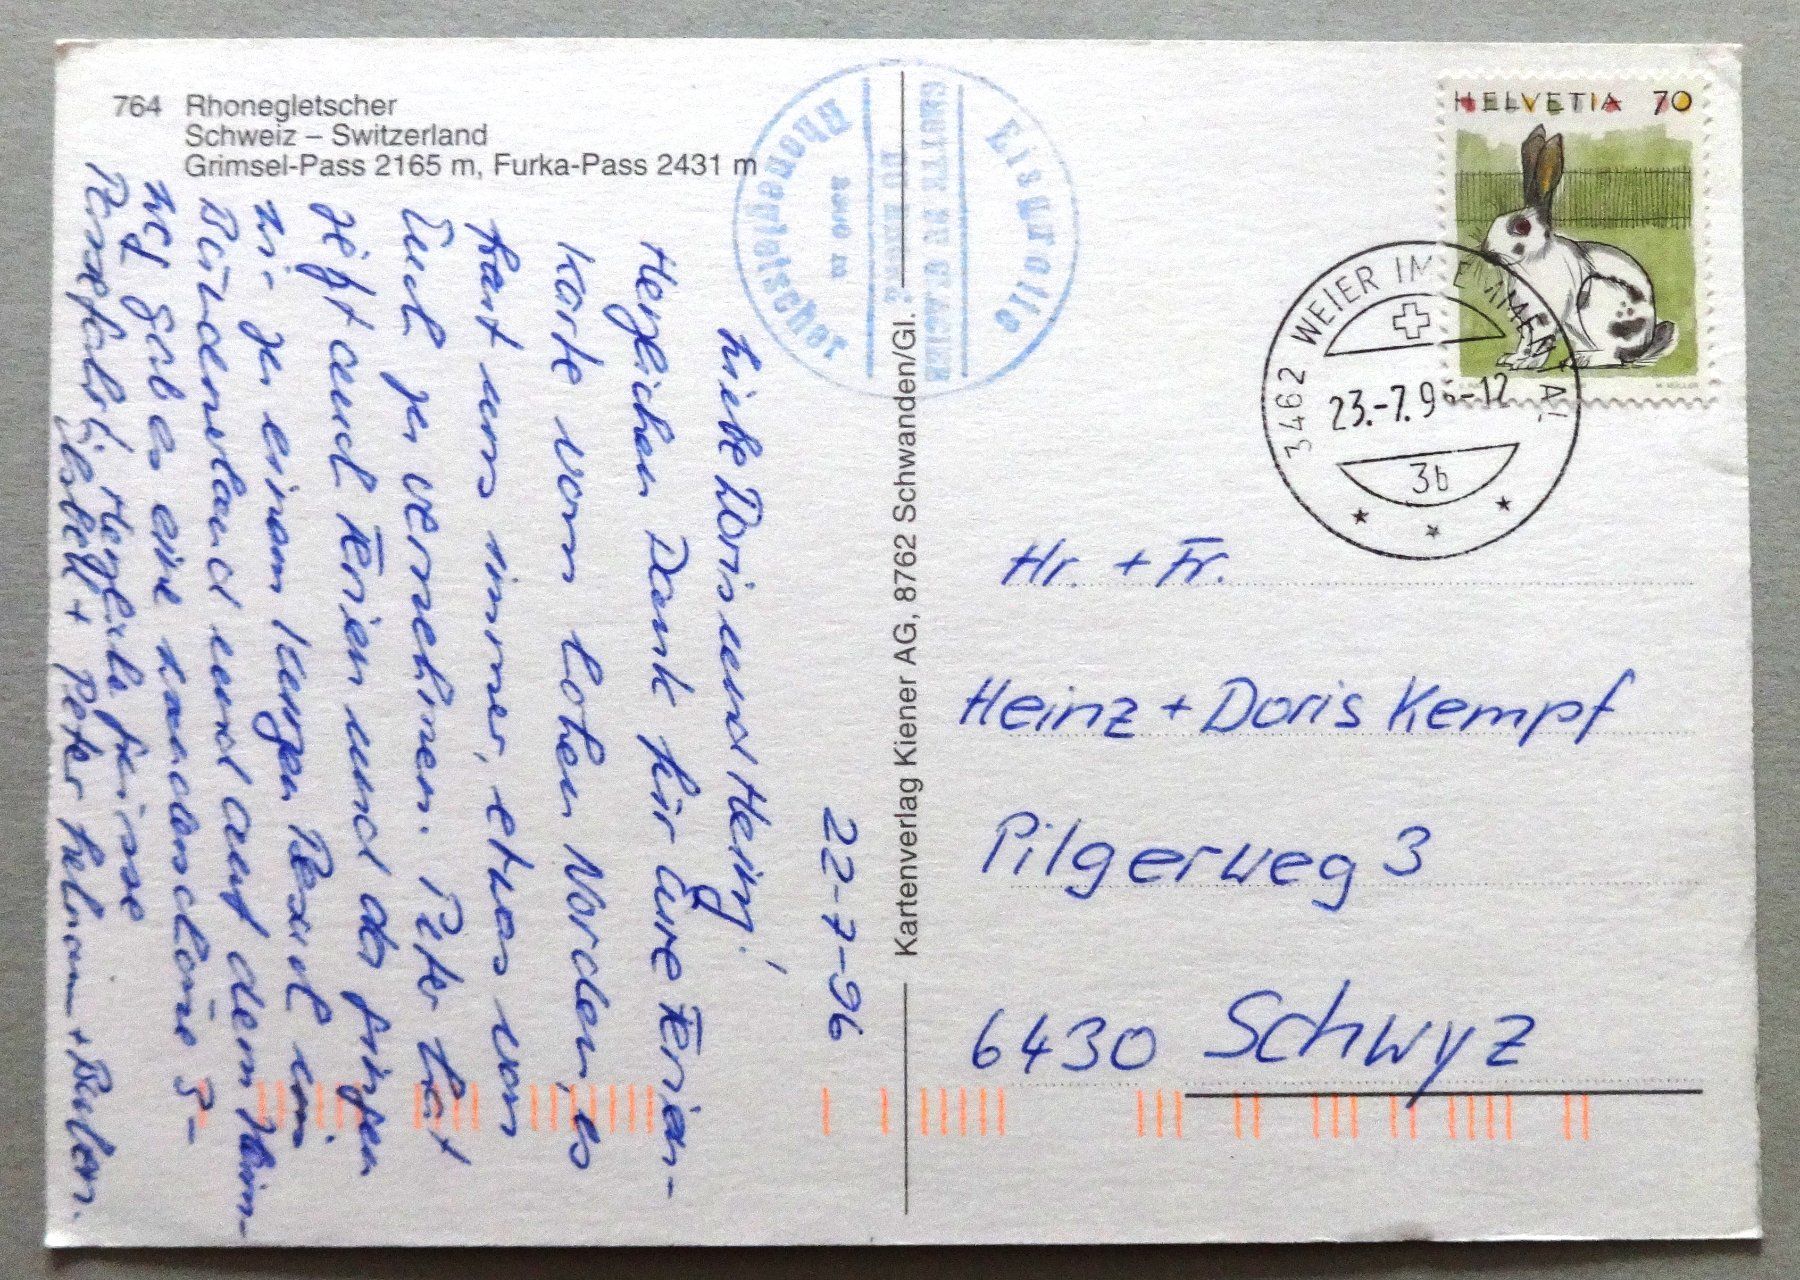 764 Rhonegletscher
Schweiz – Switzerland
Grimsel-Pass 2165 m, Furka-Pass 2431 m
Eisgrotte
GROTTE DU GLACIER
DU RHONE
2300 m
Rhonegletscher
HELVETIA 70
3462 WEIER IM EMMENTAL
23.-7.96-12
3b
22-7-96
Liebe Doris und Heinz!
Herzlichen Dank für eure Ferien-
karte vom hohen Norden, es
freut uns immer, etwas von
Euch zu vernehmen. Peter hat
jetzt auch Ferien und da
wir zu einem kurzen Besuch im
Bündnerland und auf dem Heim-
weg gab es eine
Herzliche Grüsse
+ Peter
Kartenverlag Kiener AG, 8762 Schwanden/Gl.
Hr. + Fr.
Heinz + Doris Kempf
Pilgerweg 3
6430 Schwyz